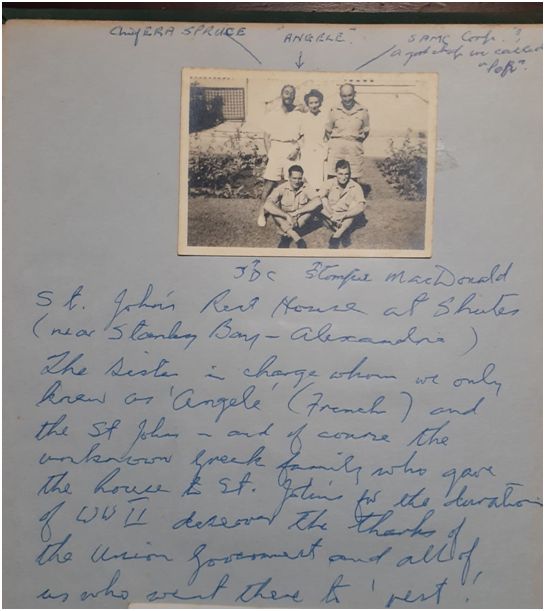 ChifERA SPRUCE "ANGELE" SAMC Corp.
A good chap we called
"Pop".
JDC Stompie MacDonald
St. John's Rest House at Shutes
(near Stanley Bay - Alexandria)
The Sister in charge whom we only
knew as 'Angele' (French) and
the St John - and of course the
unknown Greek family who gave
the house to St. John's for the duration
of WW II deserves the thanks of
the Union Government and all of
us who went there to 'rest'!